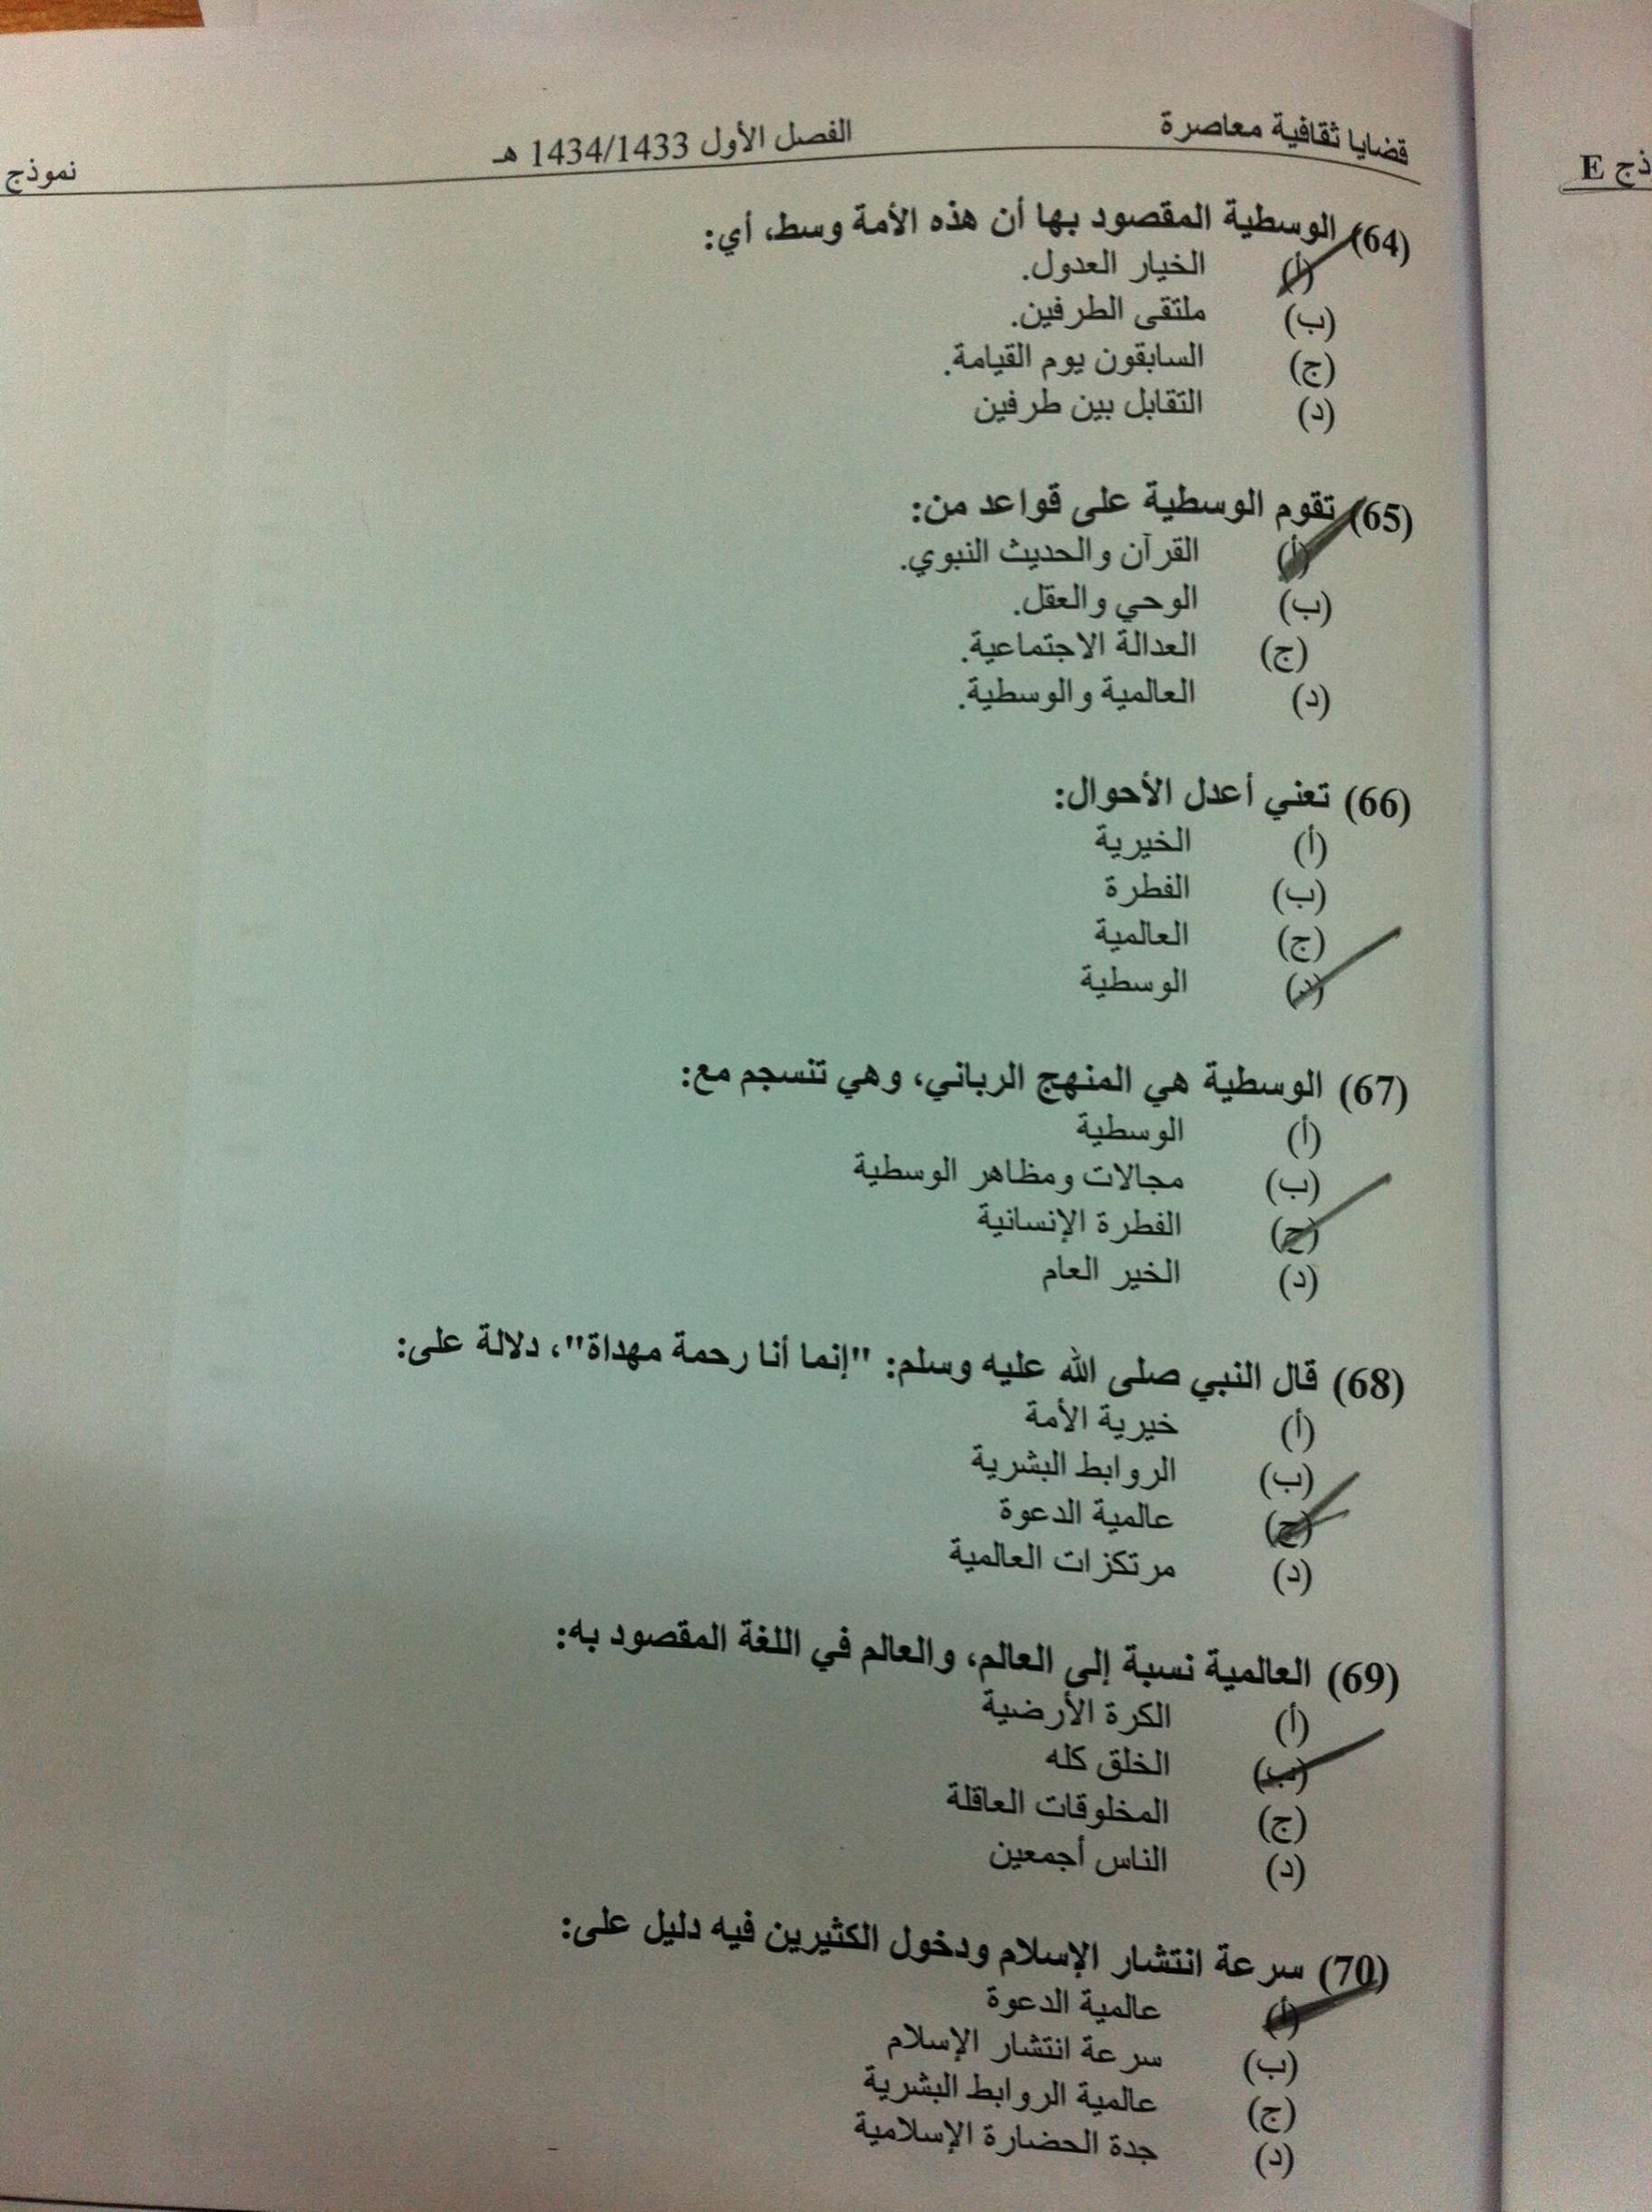 قضايا ثقافية معاصرة الفصل الأول 1434/1433 هـ نموذج
ذج E
(64) الوسطية المقصود بها أن هذه الأمة وسط، أي:
(أ) الخيار العدول.
(ب) ملتقى الطرفين.
(ج) السابقون يوم القيامة.
(د) التقابل بين طرفين
(65) تقوم الوسطية على قواعد من:
(أ) القرآن والحديث النبوي.
(ب) الوحي والعقل.
(ج) العدالة الاجتماعية.
(د) العالمية والوسطية.
(66) تعني أعدل الأحوال:
(أ) الخيرية
(ب) الفطرة
(ج) العالمية
(د) الوسطية
(67) الوسطية هي المنهج الرباني، وهي تنسجم مع:
(أ) الوسطية
(ب) مجالات ومظاهر الوسطية
(ج) الفطرة الإنسانية
(د) الخير العام
(68) قال النبي صلى الله عليه وسلم: "إنما أنا رحمة مهداة"، دلالة على:
(أ) خيرية الأمة
(ب) الروابط البشرية
(ج) عالمية الدعوة
(د) مرتكزات العالمية
(69) العالمية نسبة إلى العالم، والعالم في اللغة المقصود به:
(أ) الكرة الأرضية
(ب) الخلق كله
(ج) المخلوقات العاقلة
(د) الناس أجمعين
(70) سرعة انتشار الإسلام ودخول الكثيرين فيه دليل على:
(أ) عالمية الدعوة
(ب) سرعة انتشار الإسلام
(ج) عالمية الروابط البشرية
(د) جدة الحضارة الإسلامية